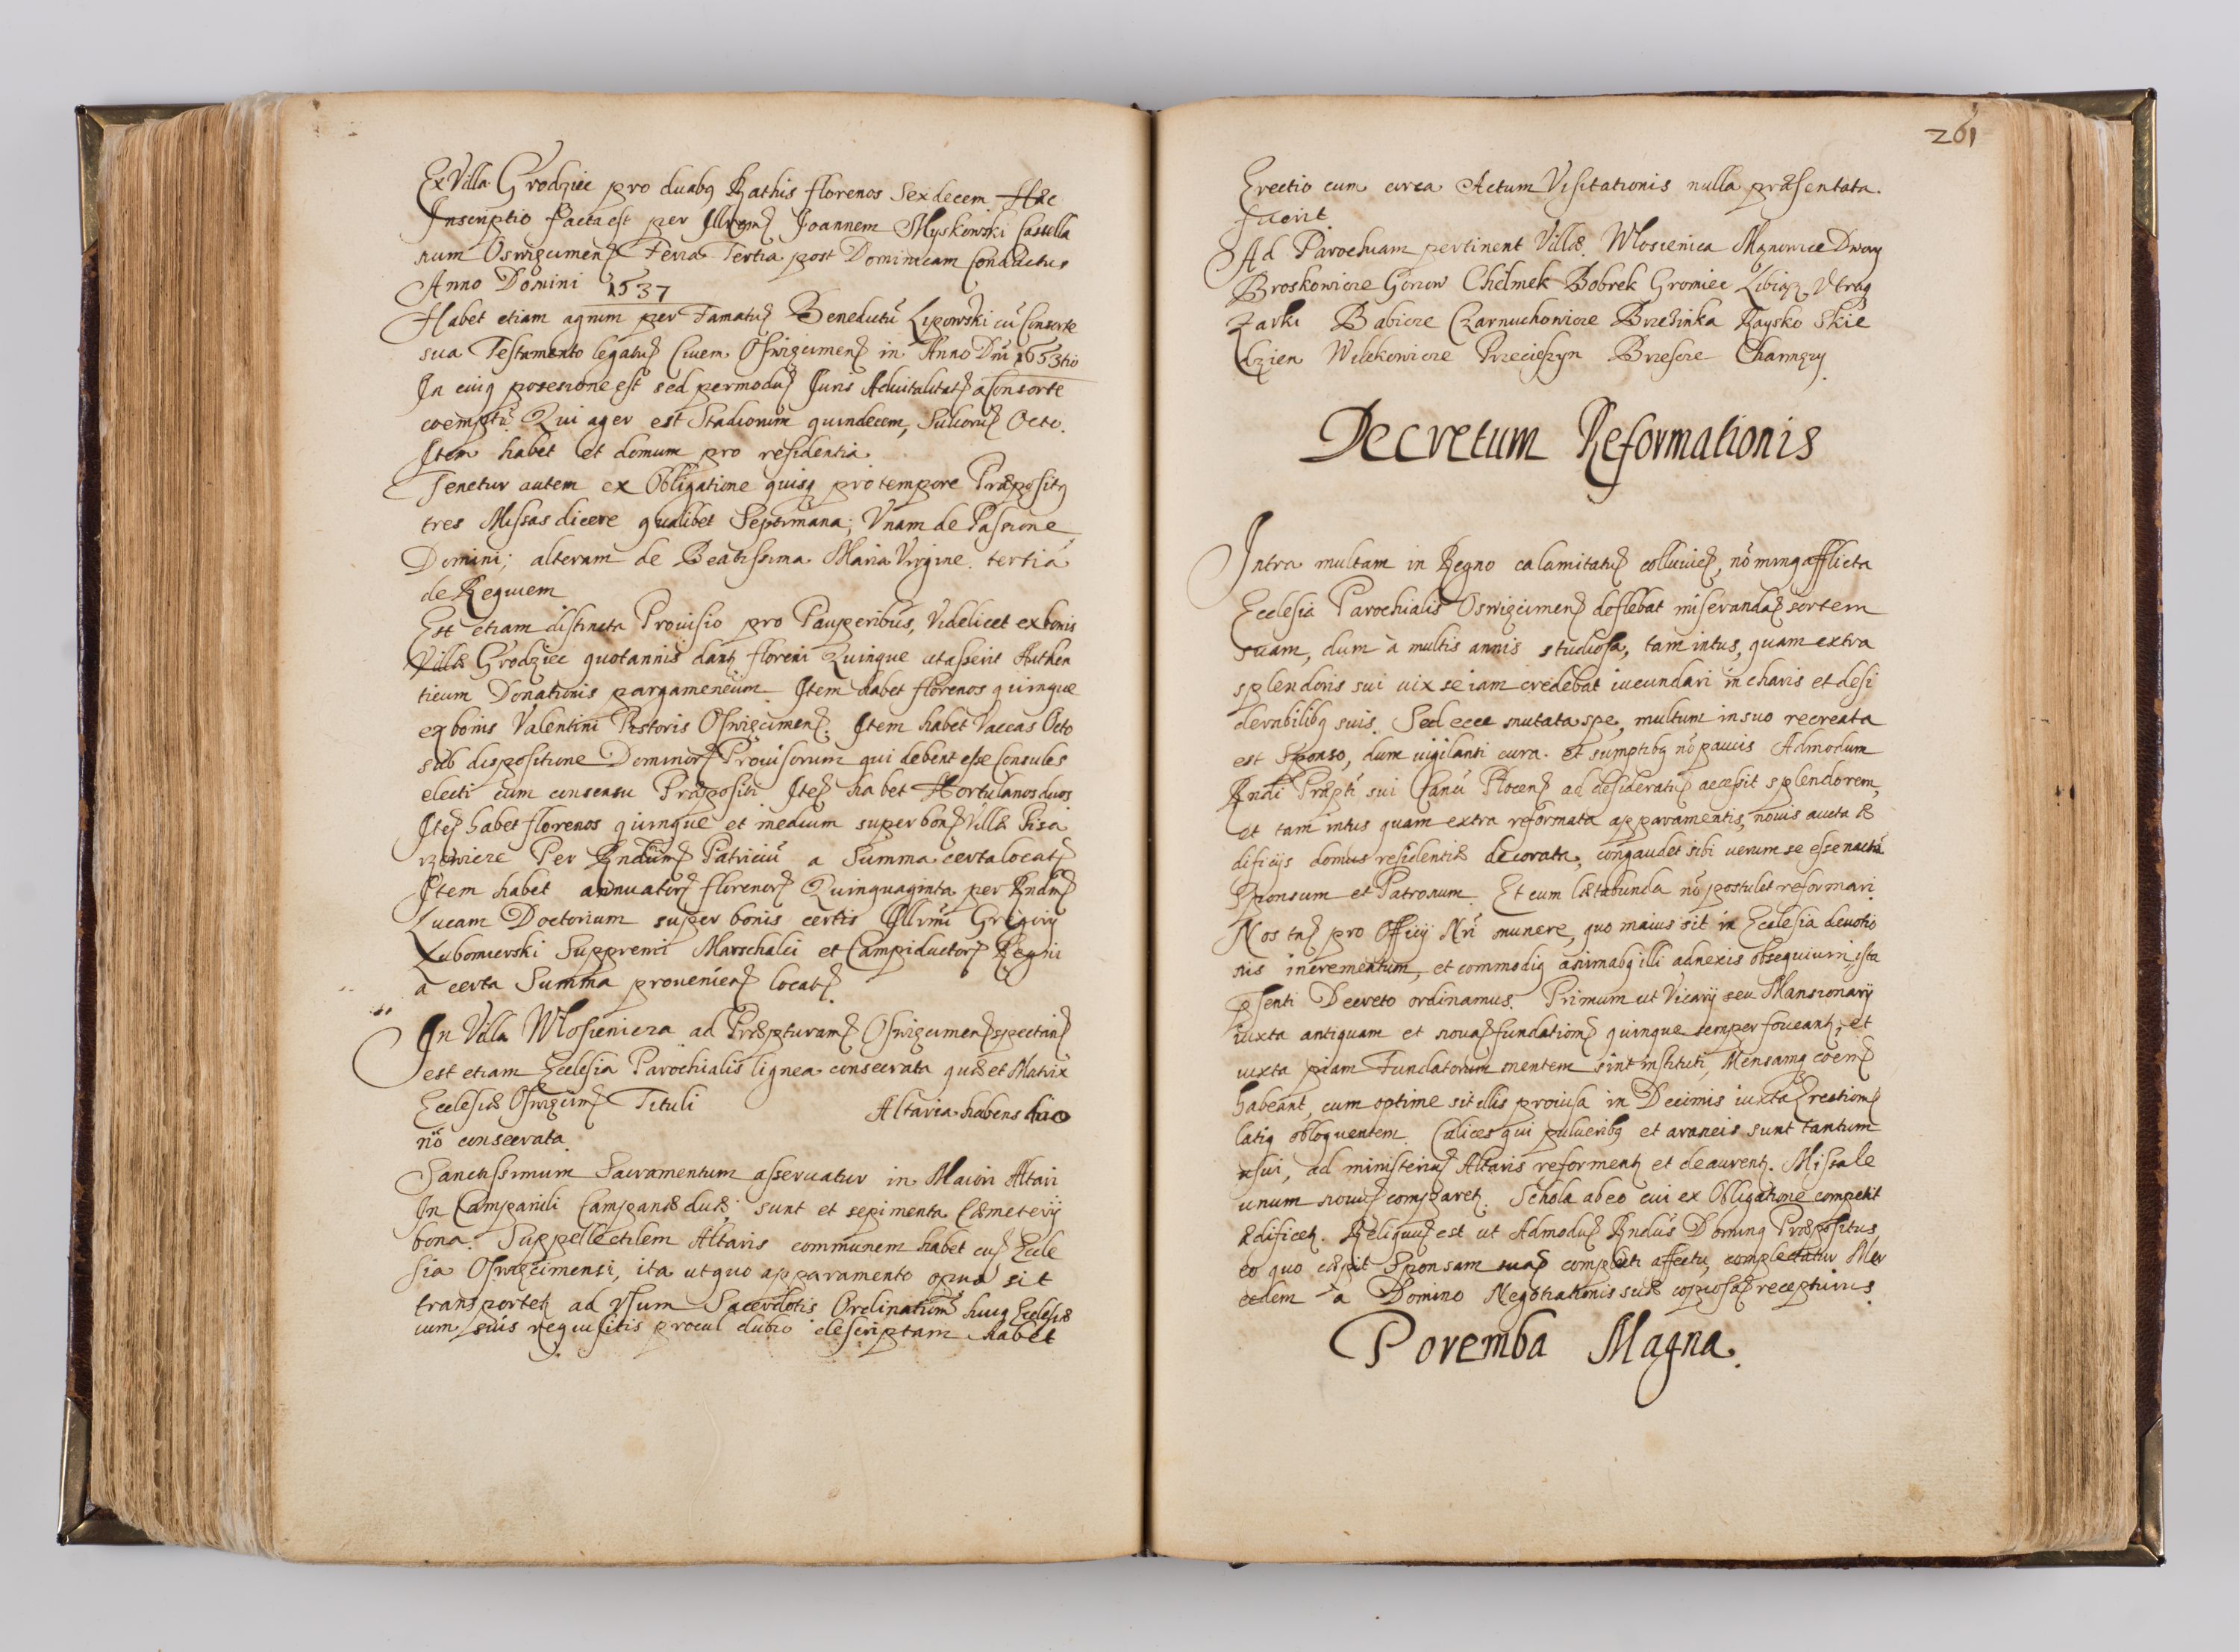 Ex Villa Grodziec pro duabq Rathis florenos Sexdecem Hæc
Inscriptio facta est per Illrem Joannem Myskowski Castella
num Oswięcimen Feria Tertia post Dominicam Conductus
Anno Domini 1537
Habet etiam agrum per Famatu Benedictū Lipowski cū Consorte
sua Testamento legatu Civem Oswięcimen in Anno Dni 1653tio
In cuiq posesione est sed per modu Iuris Aduitalitat a Consorte
coemptū Qui ager est Stadiorum quindecem, Sulcoru Octo.
Item habet et domum pro residentia
Tenetur autem ex Obligatione quisq pro tempore Præpositq
tres Missas dicere qualibet Septimana; Vnam de Passione
Domini; alteram de Beatissima Maria Virgine. tertiā
de Requiem
Est etiam distincta Prouisio pro Pauperibus, Videlicet ex bonis
Villæ Grodziec quotannis dant floreni Quinque ut asserit Authen
ticum Donationis pargameneum Item habet florenos quinque
ex bonis Valentini Pistoris Oswięcimen. Item habet Vaccas Octo
sub dispositione Dominor Prouisorum qui debent esse Consules
electi cum consensu Præpositi Ite habet Hortulanos duos
Ite habet florenos quinque et medium super bon Villæ Pisa
rzowicze Per Rndum Patriciū a Summa certa locat
Item habet annuator florenor Quinquaginta per Rndm
Lucam Doctorium super bonis certis Illrmi Gregorij
Lubomierski Suppremi Marschalci et Campiductor Regni
a certa Summa provenien locat
In Villa Wlosienicza ad Præpturam Oswięcimen spectan
est etiam Ecclesia Parochialis lignea consecrata quæ et Matrix
Ecclesiæ Oswięcim Tituli Altaria habens duo
nō consecrata
Sanctissimum Sacramentum asseruatur in Maiori Altari
In Campanili Campanæ duæ; sunt et sepimenta Cæmeterij
bona. Suppellectilem Altaris communem habet cu Eccle
sia Oswięcimensi, ita ut quo apparamento opus sit
transportet ad vsum Sacerdotis Ordinatim huiq Ecclesiæ
cum suis requisitis procul dubio descriptam habet
261
Erectio cum circa Actum Visitationis nulla præsentata
fuerit
Ad Parochiam pertinent Villæ Wlosienica Monowice Dwory
Broskowicze Gorow Chelmek Bobrek Gromiec Libiąz Vtraq
Zarki Babicze Czarnuchowicze Brzezinka Raysko Skie
dzien Wilekowicze Przecieszyn Brzescze Charmęzy
Decretum Reformationis
Intra multam in Regno calamitatu colluuie, nō minq afflicta
Ecclesia Parochialis Oswięcimen deflebat miseranda sortem
suam, dum à multis annis studiosa, tam intus, quam extra
splendoris sui uix se iam credebat iucundari in charis et desi
derabilibq suis. Sed ecce mutata spe, multum in suo recreata
est Sponso, dum uigilanti cura et sumptibq nō paucis Admodum
Rndi Præpti sui Canci Plocen ad desideratu accesit splendorem,
et tam intus quam extra reformata apparamentis, nouis aucta æ
dificijs domus residentiæ decorata, congaudet sibi uerum se esse nactā
Sponsum et Patronum. Et cum lætabunda nō postulet reformari
Nos tn pro Officij Nri munere, quo maius sit in Ecclesia deuotio
nis incrementum, et commodiq animabq illi adnexis obsequium, ista
pſenti Decreto ordinamus. Primum ut Vicarij seu Mansionarij
iuxta antiquam et noua fundation quinque semper foueant, et
iuxta piam Fundatorum mentem sint instituti, Mensamq coem
habeant, cum optime sit illis prouisa in Decimis iuxta Erection
latiq obloquentem. Calices qui pulueribq et araneis sunt tantum
usui, ad ministeriu Altaris reforment et deaurent. Missale
unum nouu comparet. Schola ab eo cui ex Obligatione competit
ædificet. Reliquu est ut Admodu Rndus Dominq Præpositus
eo quo cæpit Sponsam sua complecti affectu, complectatur Mer
cedem à Domino Negotiationis suæ copiosa recepturus
Poremba Magna.